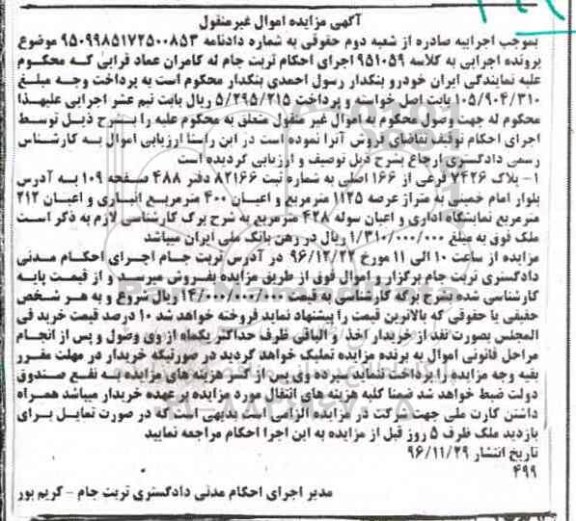 آگهی مزایده اموال غیرمنقول
بموجب اجراییه صادره از شعبه دوم حقوقی به شماره دادنامه ۹۵۰۹۹۸۵۱۷۲۵۰۰۸۵۳ موضوع
پرونده اجرایی به کلاسه ۹۵۱۰۵۹ اجرای احکام تربت جام له کامران عماد قرایی که محکوم
علیه نمایندگی ایران خودرو بنکدار رسول احمدی بنکدار محکوم است به پرداخت وجه مبلغ
۱۰۵/۹۰۴/۳۱۰ بابت اصل خواسته و پرداخت ۵/۲۹۵/۲۱۵ ریال بابت نیم عشر اجرایی علیهذا
محکوم له جهت وصول محکوم به اموال غیر منقول متعلق به محکوم علیه را بشرح ذیل توسط
اجرای احکام توقیف تقاضای فروش آنرا نموده است در این راستا ارزیابی اموال به کارشناس
رسمی دادگستری ارجاع بشرح ذیل توصیف و ارزیابی گردیده است
۱- پلاک ۷۴۲۶ فرعی از ۱۶۶ اصلی به شماره ثبت ۸۲۱۶۶ دفتر ۴۸۸ صفحه ۱۰۹ به آدرس
بلوار امام خمینی به متراژ عرصه ۱۱۲۵ مترمربع و اعیان ۴۰۰ مترمربع انباری و اعیان ۲۱۲
مترمربع نمایشگاه اداری و اعیان سوله ۴۲۸ مترمربع به شرح برگ کارشناسی لازم به ذکر است
ملک فوق به مبلغ ۱/۳۱۰/۰۰۰/۰۰۰ ریال در رهن بانک ملی ایران میباشد
مزایده از ساعت ۱۰ الی ۱۱ مورخ ۹۶/۱۲/۲۲ در آدرس تربت جام اجرای احکام مدنی
دادگستری تربت جام برگزار و اموال فوق از طریق مزایده بفروش میرسد و از قیمت پایه
کارشناسی شده بشرح برگه کارشناسی به قیمت ۱۴/۰۰۰/۰۰۰/۰۰۰ ریال شروع و به هر شخص
حقیقی یا حقوقی که بالاترین قیمت را پیشنهاد نماید فروخته خواهد شد ۱۰ درصد قیمت خرید فی
المجلس بصورت نقد از خریدار اخذ و الباقی ظرف حداکثر یکماه از وی وصول و پس از انجام
مراحل قانونی اموال به برنده مزایده تملیک خواهد گردید در صورتیکه خریدار در مهلت مقرر
بقیه وجه مزایده را پرداخت ننماید سپرده وی پس از کسر هزینه های مزایده به نفع صندوق
دولت ضبط خواهد شد ضمنا کلیه هزینه های انتقال مورد مزایده بر عهده خریدار میباشد همراه
داشتن کارت ملی جهت شرکت در مزایده الزامی است بدیهی است که در صورت تمایل برای
بازدید ملک ظرف ۵ روز قبل از مزایده به این اجرا احکام مراجعه نمایید
تاریخ انتشار ۹۶/۱۱/۲۹
۴۹۹
مدیر اجرای احکام مدنی دادگستری تربت جام - کریم پور